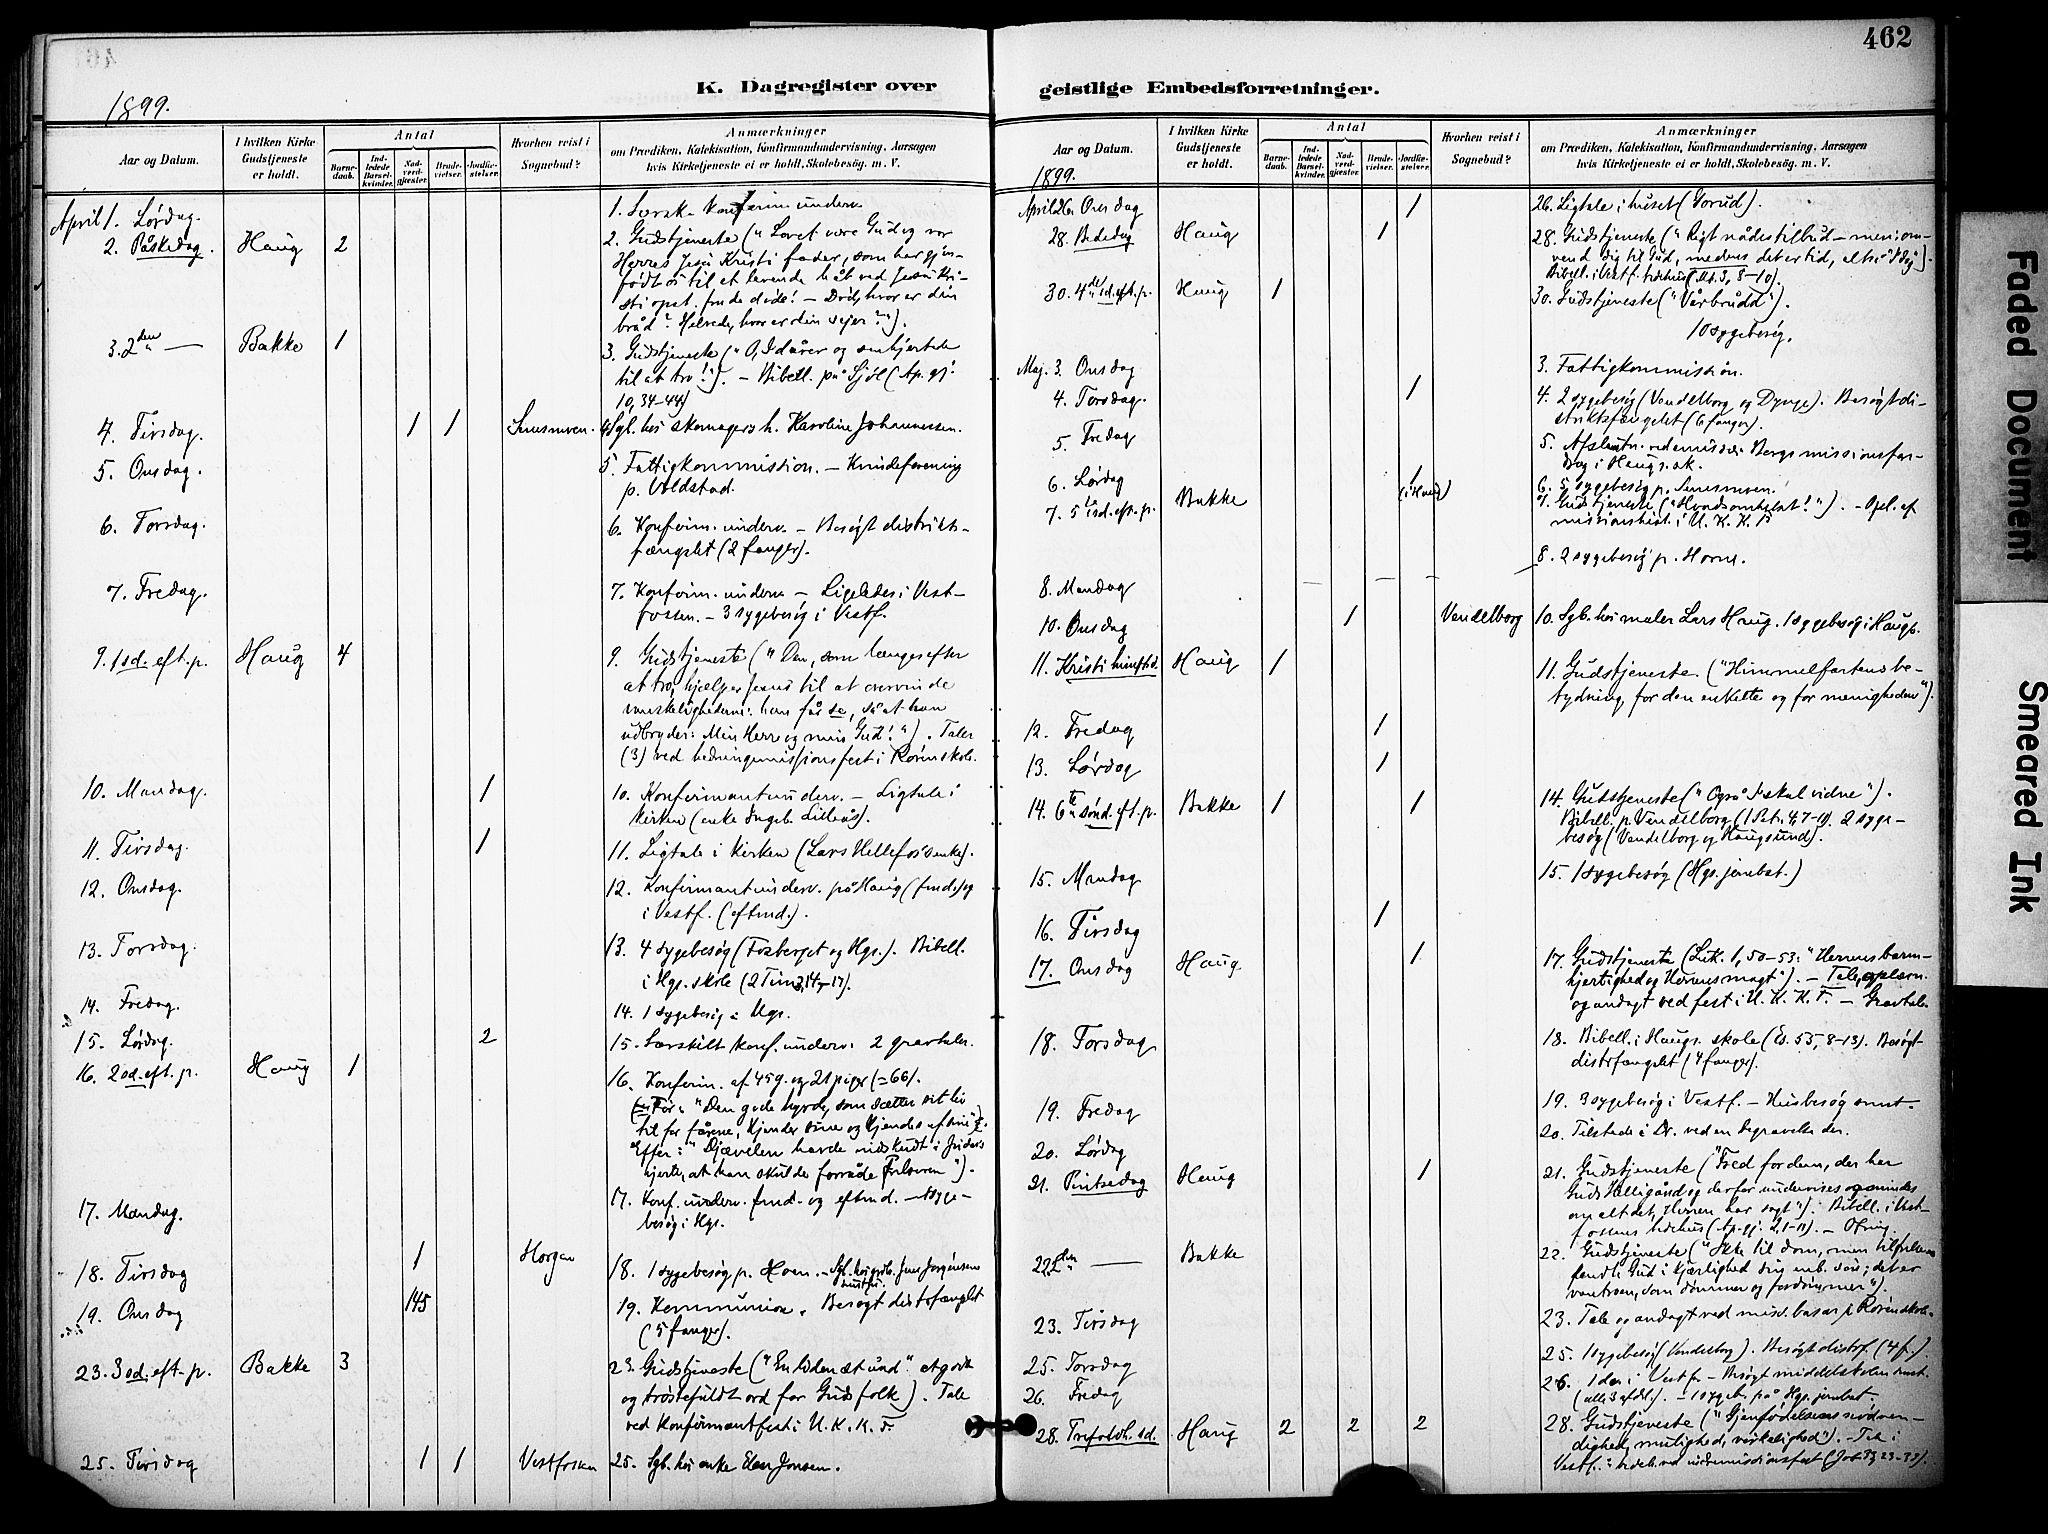 462
K. Dagregister over geistlige Embedsforretninger.
1899.
Aar og Datum.
I hvilken Kirke Gudstjeneste er holdt.
Antal
Barnedaab.
Indledede Barselkvinder.
Nadverdgjæster.
Brudevielser.
Jordfæstelser.
Hvorhen reist i Sognebud?
Anmærkninger
om Prædiken, Katekisation, Konfirmandundervisning, Aarsagen
hvis Kirketjeneste ei er holdt, Skolebesøg. m. V.
April 1. Lørdag.
2. Påskedag. Haug 2
2. Gudstjeneste ("Lovet være Gud og vor
Herres Jesu Kristi fader, som har gjen-
født os til et levende håb ved Jesu Kri-
sti opst. fra de døde! – Død, hvor er din
bråd? Helvede, hvor er din sejer?").
3. 2den — Bakke 1
3. Gudstjeneste ("O, I dårer og senhjertede
til at tro!"). – Bibell. på Sjøl (Ap. gj.
10, 34-44)
4. Tirsdag. 1 1
Sgb. hos skomagersk. Karoline Johannessen.
5. Onsdag.
5. Fattigkommission. – Kvindeforening
p. Voldstad.
6. Torsdag.
6. Konfirm. underv. – Besøgt distrikts-
fængslet (2 fanger).
7. Fredag.
7. Konfirm. underv. – Ligeledes i Vest-
fossen. – 3 sygebesøg i Vestf.
9. 1 sd. eft. p. Haug 4
9. Gudstjeneste ("Den, som længes efter
at tro, hjælper Jesus til at overvinde
vanskelighederne: han får se, så at han
udbryder: Min Herre og min Gud!"). Taler
(3) ved hedningemissionsfest i Rørinskole.
10. Mandag. 1
10. Konfirmantunderv. – Ligtale i
kirken (enke Ingeb. Lilleås).
11. Tirsdag. 1
11. Ligtale i kirken (Lars Hellefos's enke).
12. Onsdag.
12. Konfirmantunderv. på Haug (fmd.) og
i Vestf. (eftmd.).
13. Torsdag.
13. 4 sygebesøg (Fosberget og Hgs.). Bibell.
i Hgs. skole (2 Tim 3, 14-17).
14. Fredag.
14. 1 sygebesøg i Hgs.
15. Lørdag. 2
15. Særskilt konf. underv. 2 gravtaler.
16. 2 sd. eft. p. Haug 1
16. Konfirm. af 45 g. og 21 piger (=66).
Før: "Den gode hyrde, som sætter sit liv
til for fårene, kjender sine og kjendes af sine".
Efter: "Djævelen havde indskudt i Judas's
hjerte, at han skulde forråde Frelseren").
17. Mandag.
17. Konf. underv. fmd. og eftmd. – Syge-
besøg i Hgs.
18. Tirsdag 1
18. 1 sygebesøg p. Hoen. – Sgb. hos grdb. Jens Jørgensens
hustru.
19. Onsdag 145
19. Kommunion. Besøgt distr.fængslet
(5 fanger).
23. 3 sd. eft. p. Bakke 3
23. Gudstjeneste ("En liden stund". et godt
og trøstefuldt ord for Guds folk). Tale
ved konfirmantfest i U. K. K. F.
25. Tirsdag 1 1 Vestfossen
25. Sgb. hos enke Elen Jonsen.
Aar og Datum.
I hvilken Kirke Gudstjeneste er holdt.
Antal
Barnedaab.
Indledede Barselkvinder.
Nadverdgjæster.
Brudevielser.
Jordfæstelser.
Hvorhen reist i Sognebud?
Anmærkninger
om Prædiken, Katekisation, Konfirmandundervisning, Aarsagen
hvis Kirketjeneste ei er holdt, Skolebesøg. m. V.
1899.
April 26. Onsdag 1
26. Ligtale i huset (Gorud).
28. Bededag Haug 1
28. Gudstjeneste ("Rigt nådestilbud – men: om-
vend dig til Gud, medens det er tid, altså "Idag").
Bibell. i Vestf. bedehus
30. 4de sd. eft. p. Haug 1
30. Gudstjeneste ("Vårbrudd").
10 sygebesøg.
Maj. 3. Onsdag
3. Fattigkommission.
4. Torsdag. 1
4. 2 sygebesøg (Vendelborg og Dynge). Besøgt di-
striktsfængslet (6 fanger).
5. Fredag
5. missionær Bergs missionsfor-
drag i Haugs sk.
6. Lørdag 1
6. 5 sygebesøg p.
7. 5 sd. eft. p. Bakke (i Haug)
7. Gudstjeneste – Opl. af
missionshist. i U. K. K. F
8. Mandag
8. 2 sygebesøg p. Horne.
10. Onsdag 1 Vendelborg
10. Sgb. hos maler Lars Haug. 1 sygebesøg i Haugs.
11. Kristi himfsd. Haug 1
11. Gudstjeneste ("Himmelfartens be-
tydning, for den enkelte og for menigheden").
12. Fredag 1
13. Lørdag 1
14. 6te sønd. eft. p. Bakke 1 1
14. Gudstjeneste ("Også I skal vidne").
Bibell. p. Vendelborg (1 Pet. 4, 7-11). 2 syge-
besøg (Vendelborg og Haugsund).
15. Mandag
15. 1 sygebesøg (Hgs. jernbst.)
16. Tirsdag 1
17. Onsdag Haug 1
17. Gudstjeneste (Luk. 1, 50-53: "Herrens barm-
hjertighed og Herrens magt"). – Tale, oplæsn.
og andagt ved fest i U. K. K. F. – Gravtale.
18. Torsdag
18. Bibell. i Haugs. skole (Es. 55, 8-13). Besøgt
distr.fængslet (4 fanger).
19. Fredag
19. 3 sygebesøg i Vestf. – Husbesøg smst.
20. Lørdag
20. Tilstede i Dr. ved en begravelse der.
21. Pintsedag Haug 1
21. Gudstjeneste ("Fred for dem, der har
Guds Helligånd og derfor undervises og mindes
om alt det, Herren har sagt"). Bibell. i Vest-
fossens bedehus (Ap. gj. 2, 1-11). – Ofring.
22. 2den — Bakke
22. Gudstjeneste ("Ikke til dom, men til frelse
sendte Gud i kjærlighed sin enb. søn; det er
vantroen, som dømmer og fordømmer").
23. Tirsdag
23. Tale og andagt ved miss. basar i Rørinskole.
25. Torsdag
25. 1 sygebesøg (Vendelborg). Besøgt distrf. (4 f.).
26. Fredag
26. 1 do. i Vestf. – Besøgt middelskolen smst.
(alle 3 afdl.). – 1 sygeb. på Hgs. jernbst.
28. Trefoldh. sd. Haug 2 2 2
28. Gudstjeneste ("Gjenfødelsens nødven-
dighed, mulighed, virkelighed"). – Tale i
Vestf.'s bedeh. ved indremissionsfest
Faded Document
Smeared Ink